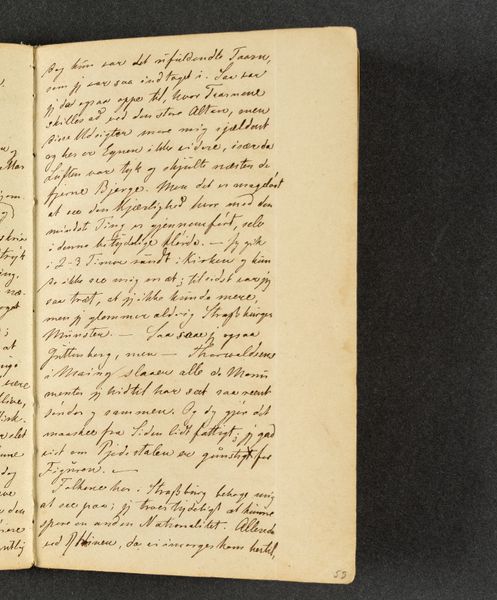 dog kun var det ufuldendte Taarn,
som jeg var saa indtaget i. Saa var
jeg da ogsaa oppe til, hvor Taarnene
skilles ad ved den store Altan, men
disse Udsigter more mig sjeldent
og her er Egnen ikke videre, især da
Luften var tyk og skjulte næsten de
fjerne Bjerge. Men det er mageløst
at see den Kjærlighed hvor med den
mindste Ting er gjennemført, selv
i denne betydelige Høide. — Jeg gik
i 2-3 Timer rundt i Kirken og kun
de ikke see mig en at; til sidst var jeg
saa træt, at jeg ikke kunde mere,
men jeg glemmer aldrig Straßburger
Münster. — Saa saae jeg ogsaa
Guttenberg, men — Thorvaldsens
i Mainz slaaer alle de Monu
menter jeg hidtil har seet saa reent
sønder og sammen. Og dog gjør det
maaskee fra Siden lidt fattigt; jeg gad
vist om Piedestalen er gunstigt for
Figuren. —
Folkene her i Straßburg behage mig
at see paa; jeg troer tydeligt at kunne
spore en anden Nationalitet. Allerede
ved Rhinen, da vi imorges kom hertil,
59